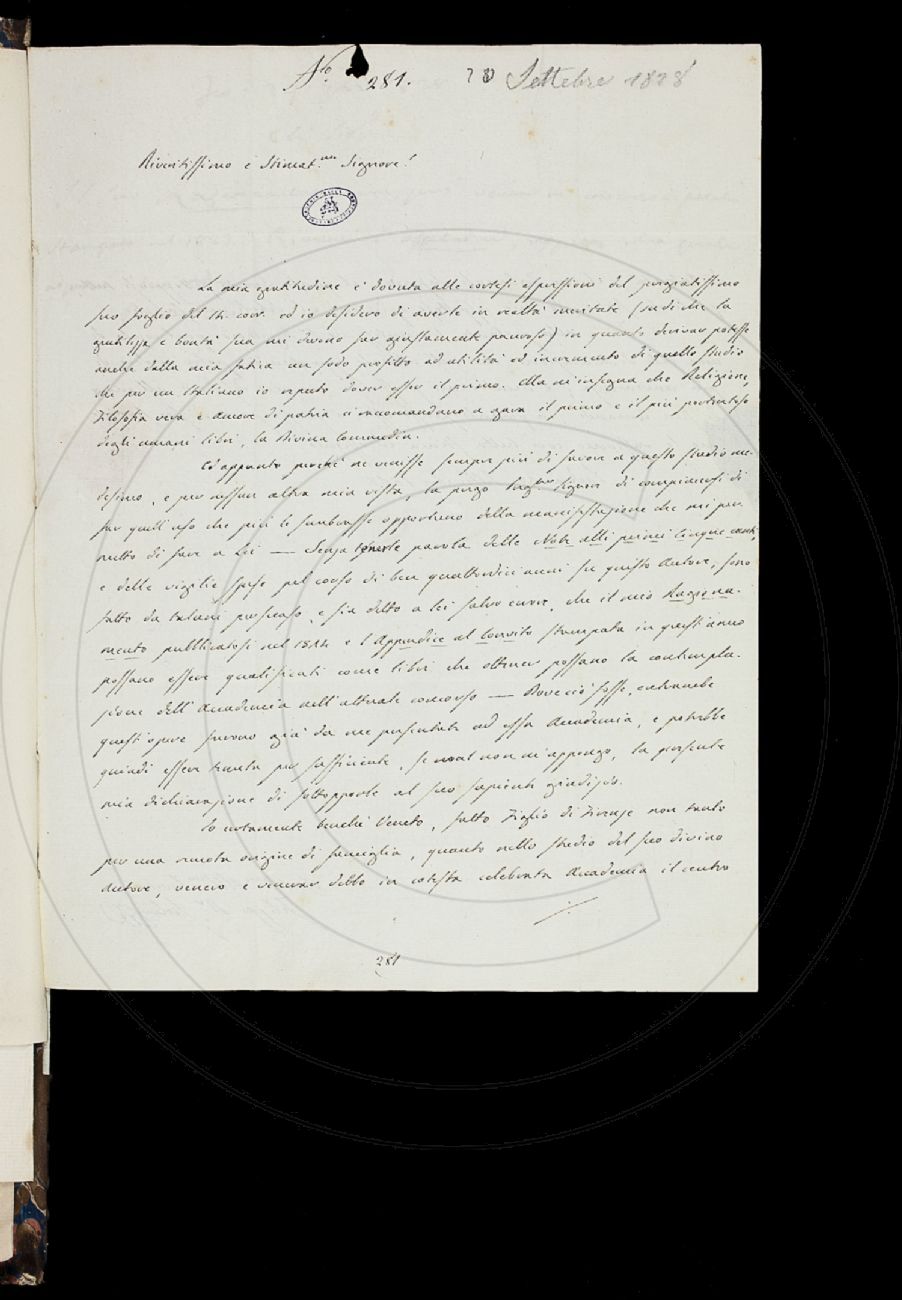 N.o 281. 20 Settebre 1828
Riveritissimo e Stimat.mo Signore!
La mia gratitudine è dovuta alle cortesi espressioni del pregiatissimo
suo foglio del 14. corr. ed io desidero di averle in realtà meritate (su di che la
gentilezza e bontà sua mi devono far giustamente pauroso) in quanto derivar potesse
anche dalla mia fatica un sodo profitto ad utilità ed incremento di quello studio
che per un Italiano io reputo dover esser il primo. Alla Religione,
Filosofia vera e Amore di patria ci raccomandano a gara il primo e il più portentoso
degli umani libri, la Divina Commedia.
Ed appunto perché ne venisse sempre più di favore a questo studio me-
desimo, e per nessun altra mia vista, la prego Signor di compiacersi di
far quell'uso che più le sembrasse opportuno della manifestazione che mi per-
metto di fare a Lei — Senza tenerle parola delle Note alli primi cinque canti,
e delle vigilie spese pel corso di ben quattordici anni su questo Autore, sono
fatto da taluni persuaso, e sia detto a lei salvo errore, che il mio Ragiona-
mento pubblicatosi nel 1824 e l'Appendice al Convito stampata in quest'anno
possano essere qualificati come libri che ottener possano la contempla-
zione dell'Accademia nell'attuale concorso — Dove ciò fosse, entrambe
quest'opere furono già da me presentate ad essa Accademia, e potrebbe
quindi essere tenuta per sufficiente, se mal non m'appongo, la presente
mia dichiarazione di sottoporle al suo sapiente giudizio.
Io certamente benché Veneto, fatto Figlio di Firenze non tanto
per una remota origine di famiglia, quanto nello studio del suo divino
Autore, venero e venerar debbo in cotesta celebrata Accademia il centro
281